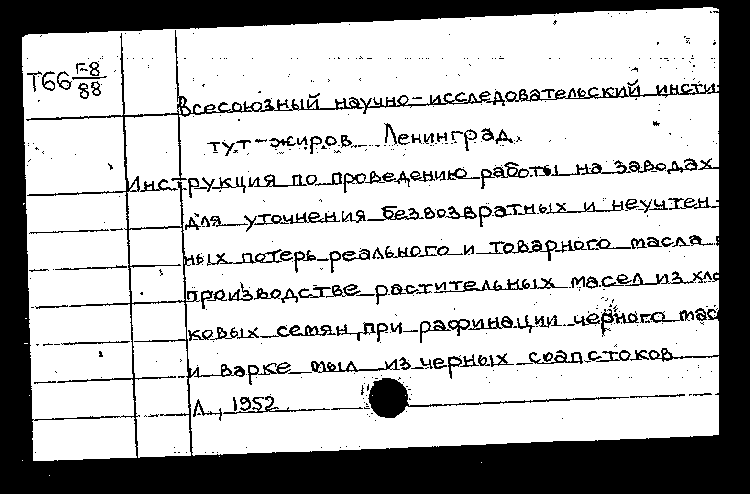 Т66 Г-8
88
Всесоюзный научно-исследовательский инсти-
тут-жиров Ленинград.
Инструкция по проведению работы на заводах
для уточнения безвозвратных и неучтен-
ных потерь реального и товарного масла
производстве растительных масел из хло
ковых семян, при рафинации черного мас
и варке мыл из черных соапстоков
Л., 1952.